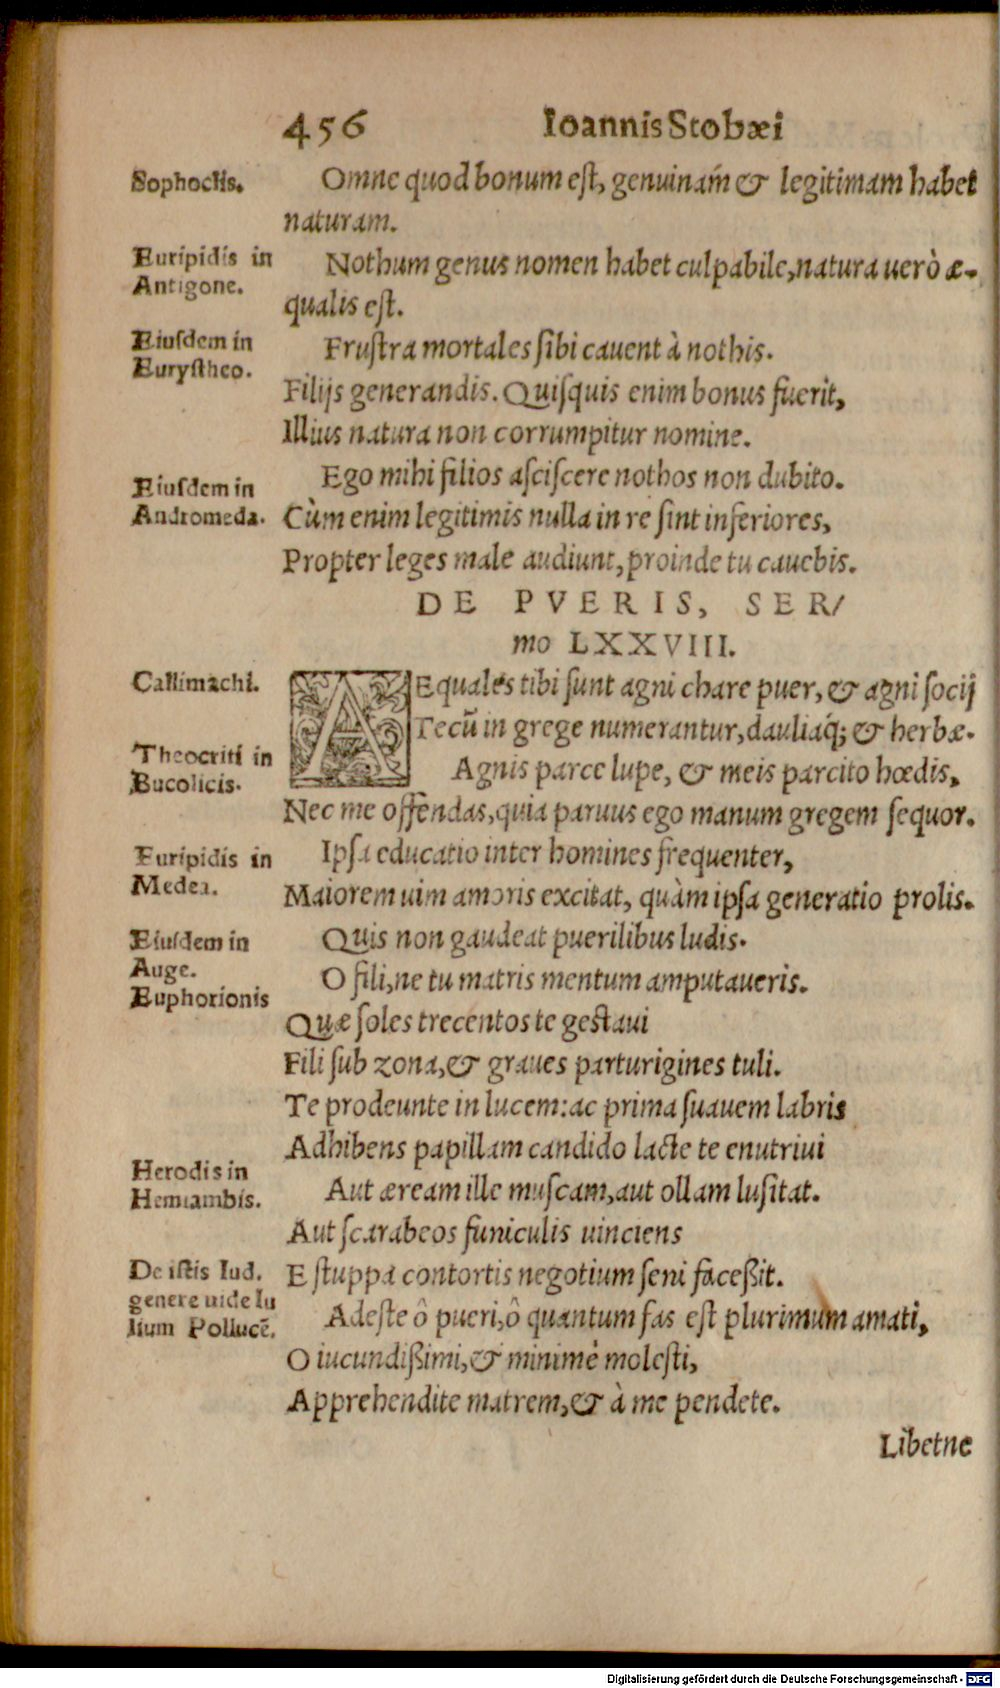 456 Ioannis Stobæi
Sophoclis.
Omne quod bonum est, genuinaḿ & legitimam habet
naturam.
Euripidis in
Antigone.
Nothum genus nomen habet culpabile, natura uerò æ-
qualis est.
Eiusdem in
Eurystheo.
Frustra mortales sibi cauent à nothis.
Filijs generandis. Quisquis enim bonus fuerit,
Illius natura non corrumpitur nomine.
Eiusdem in
Andromeda.
Ego mihi filios asciscere nothos non dubito.
Cùm enim legitimis nulla in re sint inferiores,
Propter leges male audiunt, proinde tu cauebis.
DE PVERIS, SER/
mo LXXVIII.
Callimachi.
AEquales tibi sunt agni chare puer, & agni socij
Tecū in grege numerantur, dauliaq́; & herbæ.
Theocriti in
Bucolicis.
Agnis parce lupe, & meis parcito hœdis,
Nec me offendas, quia paruus ego manum gregem sequor.
Euripidis in
Medea.
Ipsa educatio inter homines frequenter,
Maiorem uim amoris excitat, quàm ipsa generatio prolis.
Eiusdem in
Auge.
Quis non gaudeat puerilibus ludis.
Euphorionis
O fili, ne tu matris mentum amputaueris.
Quæ soles trecentos te gestaui
Fili sub zona, & graues parturigines tuli.
Te prodeunte in lucem: ac prima suauem labris
Adhibens papillam candido lacte te enutriui
Herodis in
Hemiambis.
Aut æream ille muscam, aut ollam lusitat.
Aut scarabeos funiculis uinciens
De istis lud.
genere uide Iu
lium Pollucē.
E stuppa contortis negotium seni faceßit.
Adeste ô pueri, ô quantum fas est plurimum amati,
O iucundißimi, & minimè molesti,
Apprehendite matrem, & à me pendete.
Libetne
Digitalisierung gefördert durch die Deutsche Forschungsgemeinschaft - DFG